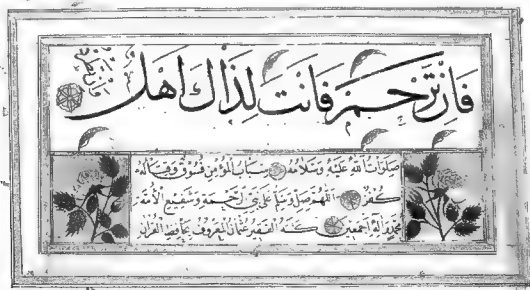 فَاِنْ تَرْحَمْ فَاَنْتَ لِذَاكَ اَهْلٌ
صلوات الله عليه وسلامه سباب المؤمن فسوق وقتاله
كفر اللهم صل وسلم على نبي الرحمة وشفيع الأمة
محمد وآله أجمعين كتبه الفقير عثمان المعروف بحافظ القرآن